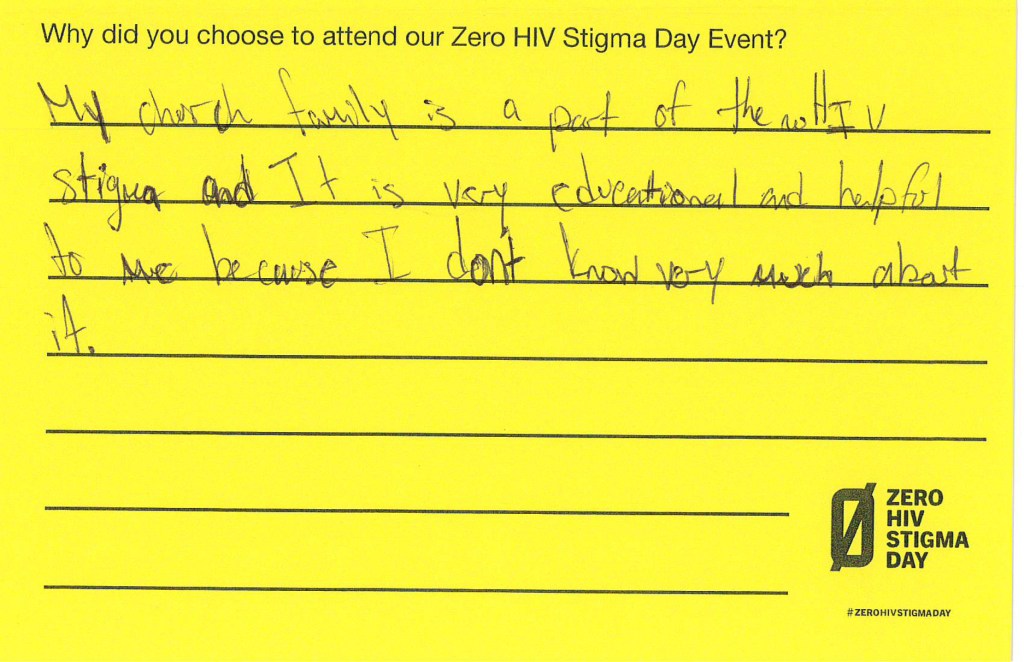 Why did you choose to attend our Zero HIV Stigma Day Event?
My church family is a part of the no HIV
stigma and It is very educational and helpful
to me because I don't know very much about
it.
ZERO
HIV
STIGMA
DAY
#ZEROHIVSTIGMADAY